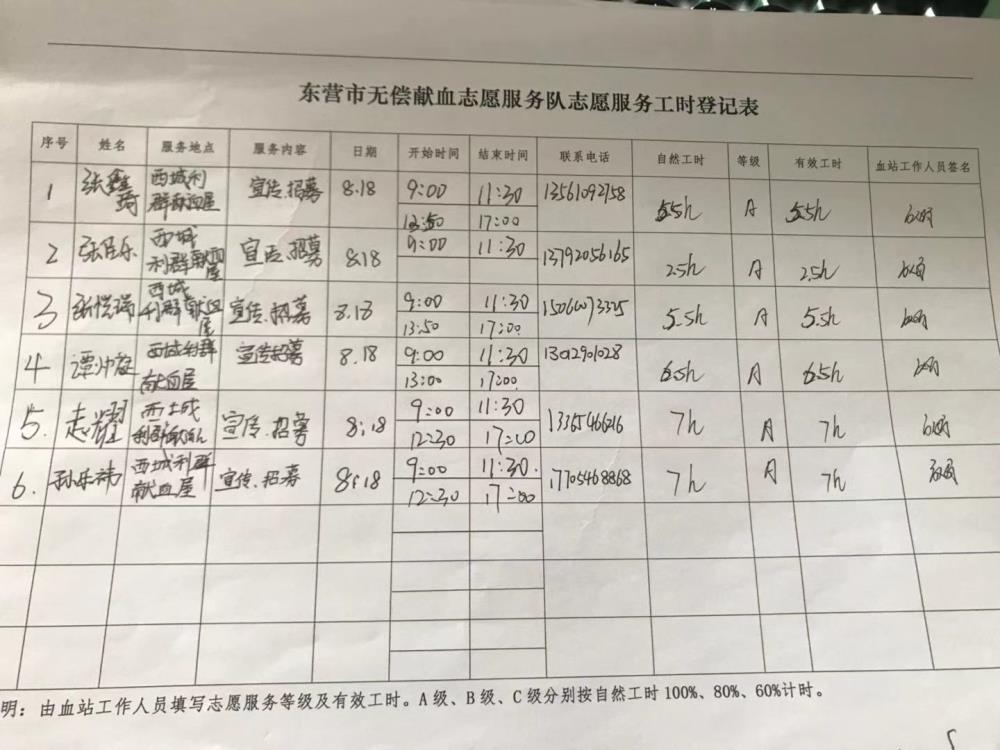 东营市无偿献血志愿服务队志愿服务工时登记表
序号 姓名 服务地点 服务内容 日期 开始时间 结束时间 联系电话 自然工时 等级 有效工时 血站工作人员签名
1 张鑫琦 西城利群献血屋 宣传、招募 8.18 9:00 11:30 13561092758 5.5h A 5.5h
13:50 17:00
2 张臣乐 西城利群献血屋 宣传、招募 8.18 9:00 11:30 13792056165 2.5h A 2.5h
3 张恺瑞 西城利群献血屋 宣传、招募 8.18 9:00 11:30 A 5.5h
13:50 17:00 5.5h
4 谭 西城利群献血屋 宣传招募 8.18 9:00 11:30 13012901028 6.5h A 6.5h
13:00 17:00
5. 志耀 西城 宣传、招募 8:18 9:00 11:30 7h A 7h
12:30 17:00
6. 孙乐祎 西城利群献血屋 宣传、招募 8:18 9:00 11:30. 17705468868 7h A 7h
12:30 17:00
明：由血站工作人员填写志愿服务等级及有效工时。A 级、B 级、C 级分别按自然工时 100%、80%、60%计时。